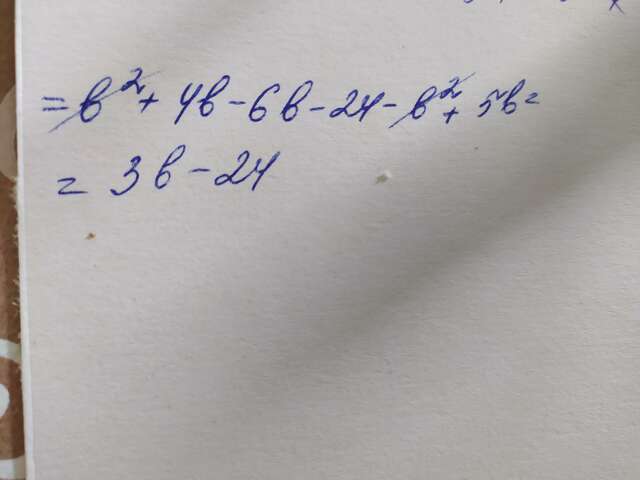 = b² + 4b - 6b - 24 - b² + 5b =
= 3b - 24